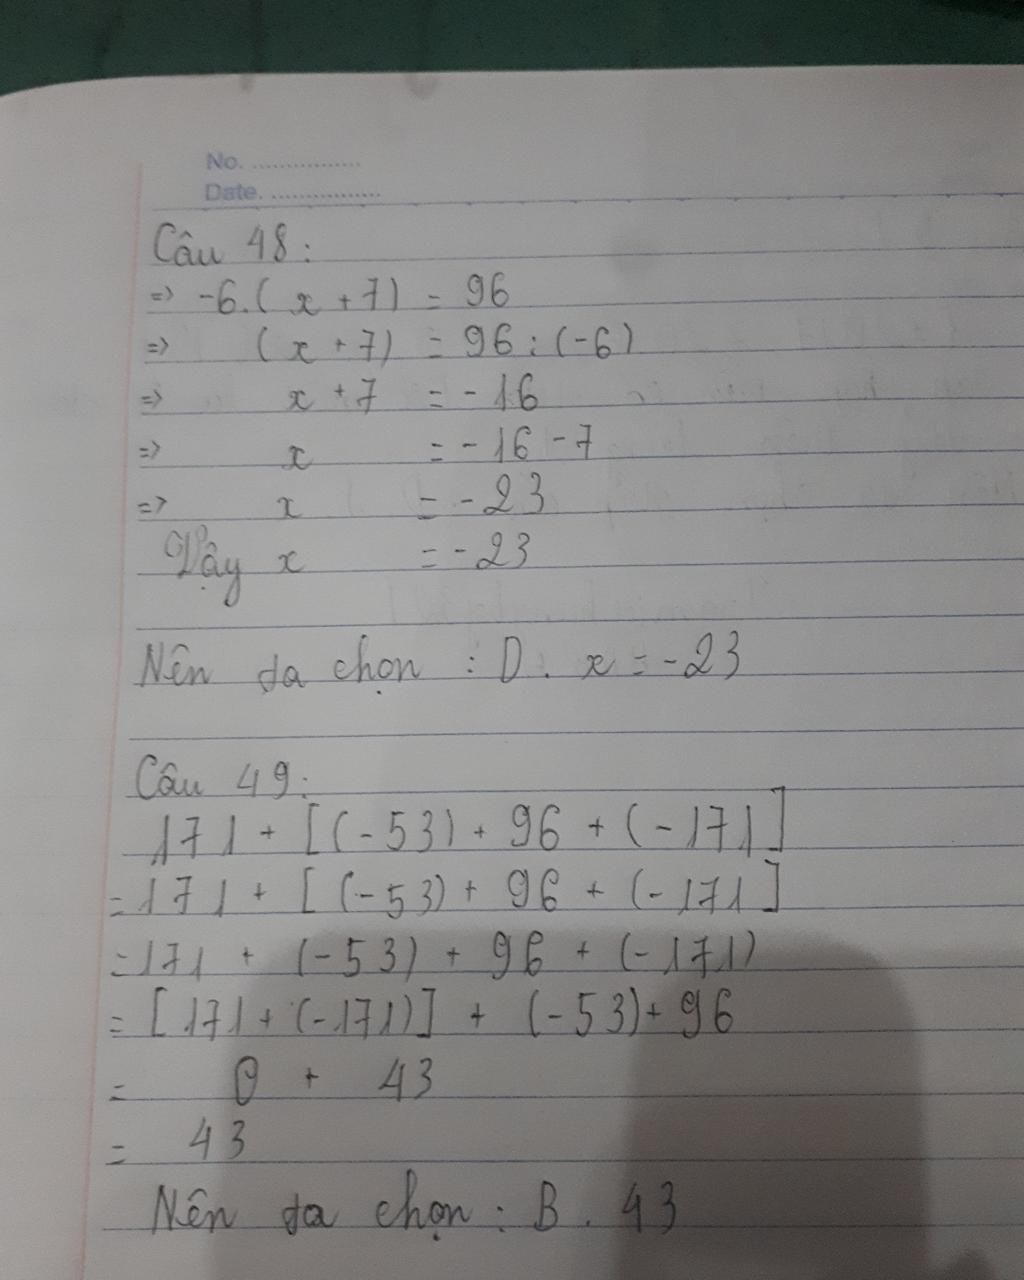 No. ................
Date. ................
Câu 48:
=> -6.( x + 7) = 96
=> ( x + 7) = 96 : (-6)
=> x + 7 = - 16
=> x = - 16 - 7
=> x = - 23
Vậy x = - 23
Nên ta chọn : D. x = - 23
Câu 49:
171 + [(-53) + 96 + (-171]
= 171 + [(-53) + 96 + (-171]
= 171 + (-53) + 96 + (-171)
= [171 + (-171)] + (-53) + 96
= 0 + 43
= 43
Nên ta chọn : B. 43